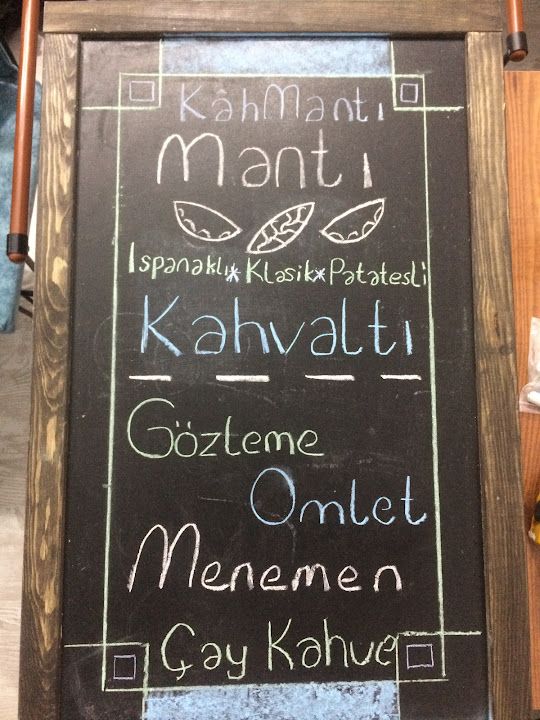 KâhMantı
Mantı
Ispanaklı * Klasik * Patatesli
Kahvaltı
Gözleme
Omlet
Menemen
Çay Kahve